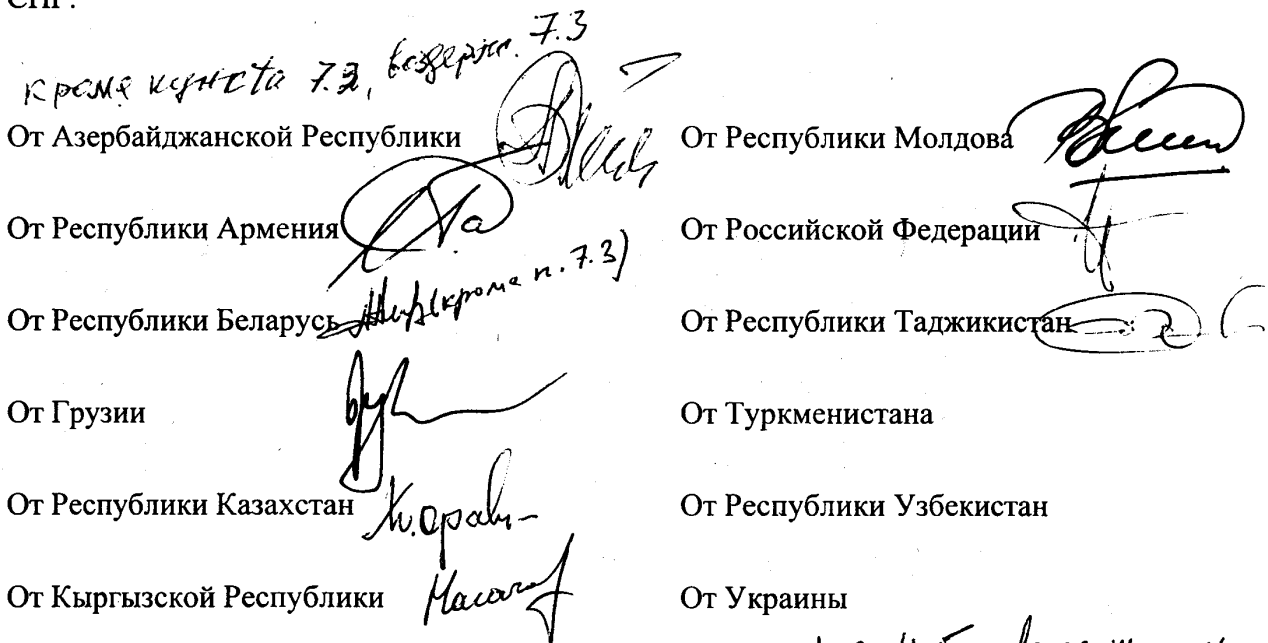 СНГ.
кроме пункта 7.2, воздерж. 7.3
От Азербайджанской Республики
От Республики Армения
От Республики Беларусь (кроме п. 7.3)
От Грузии
От Республики Казахстан
От Кыргызской Республики
От Республики Молдова
От Российской Федерации
От Республики Таджикистан
От Туркменистана
От Республики Узбекистан
От Украины